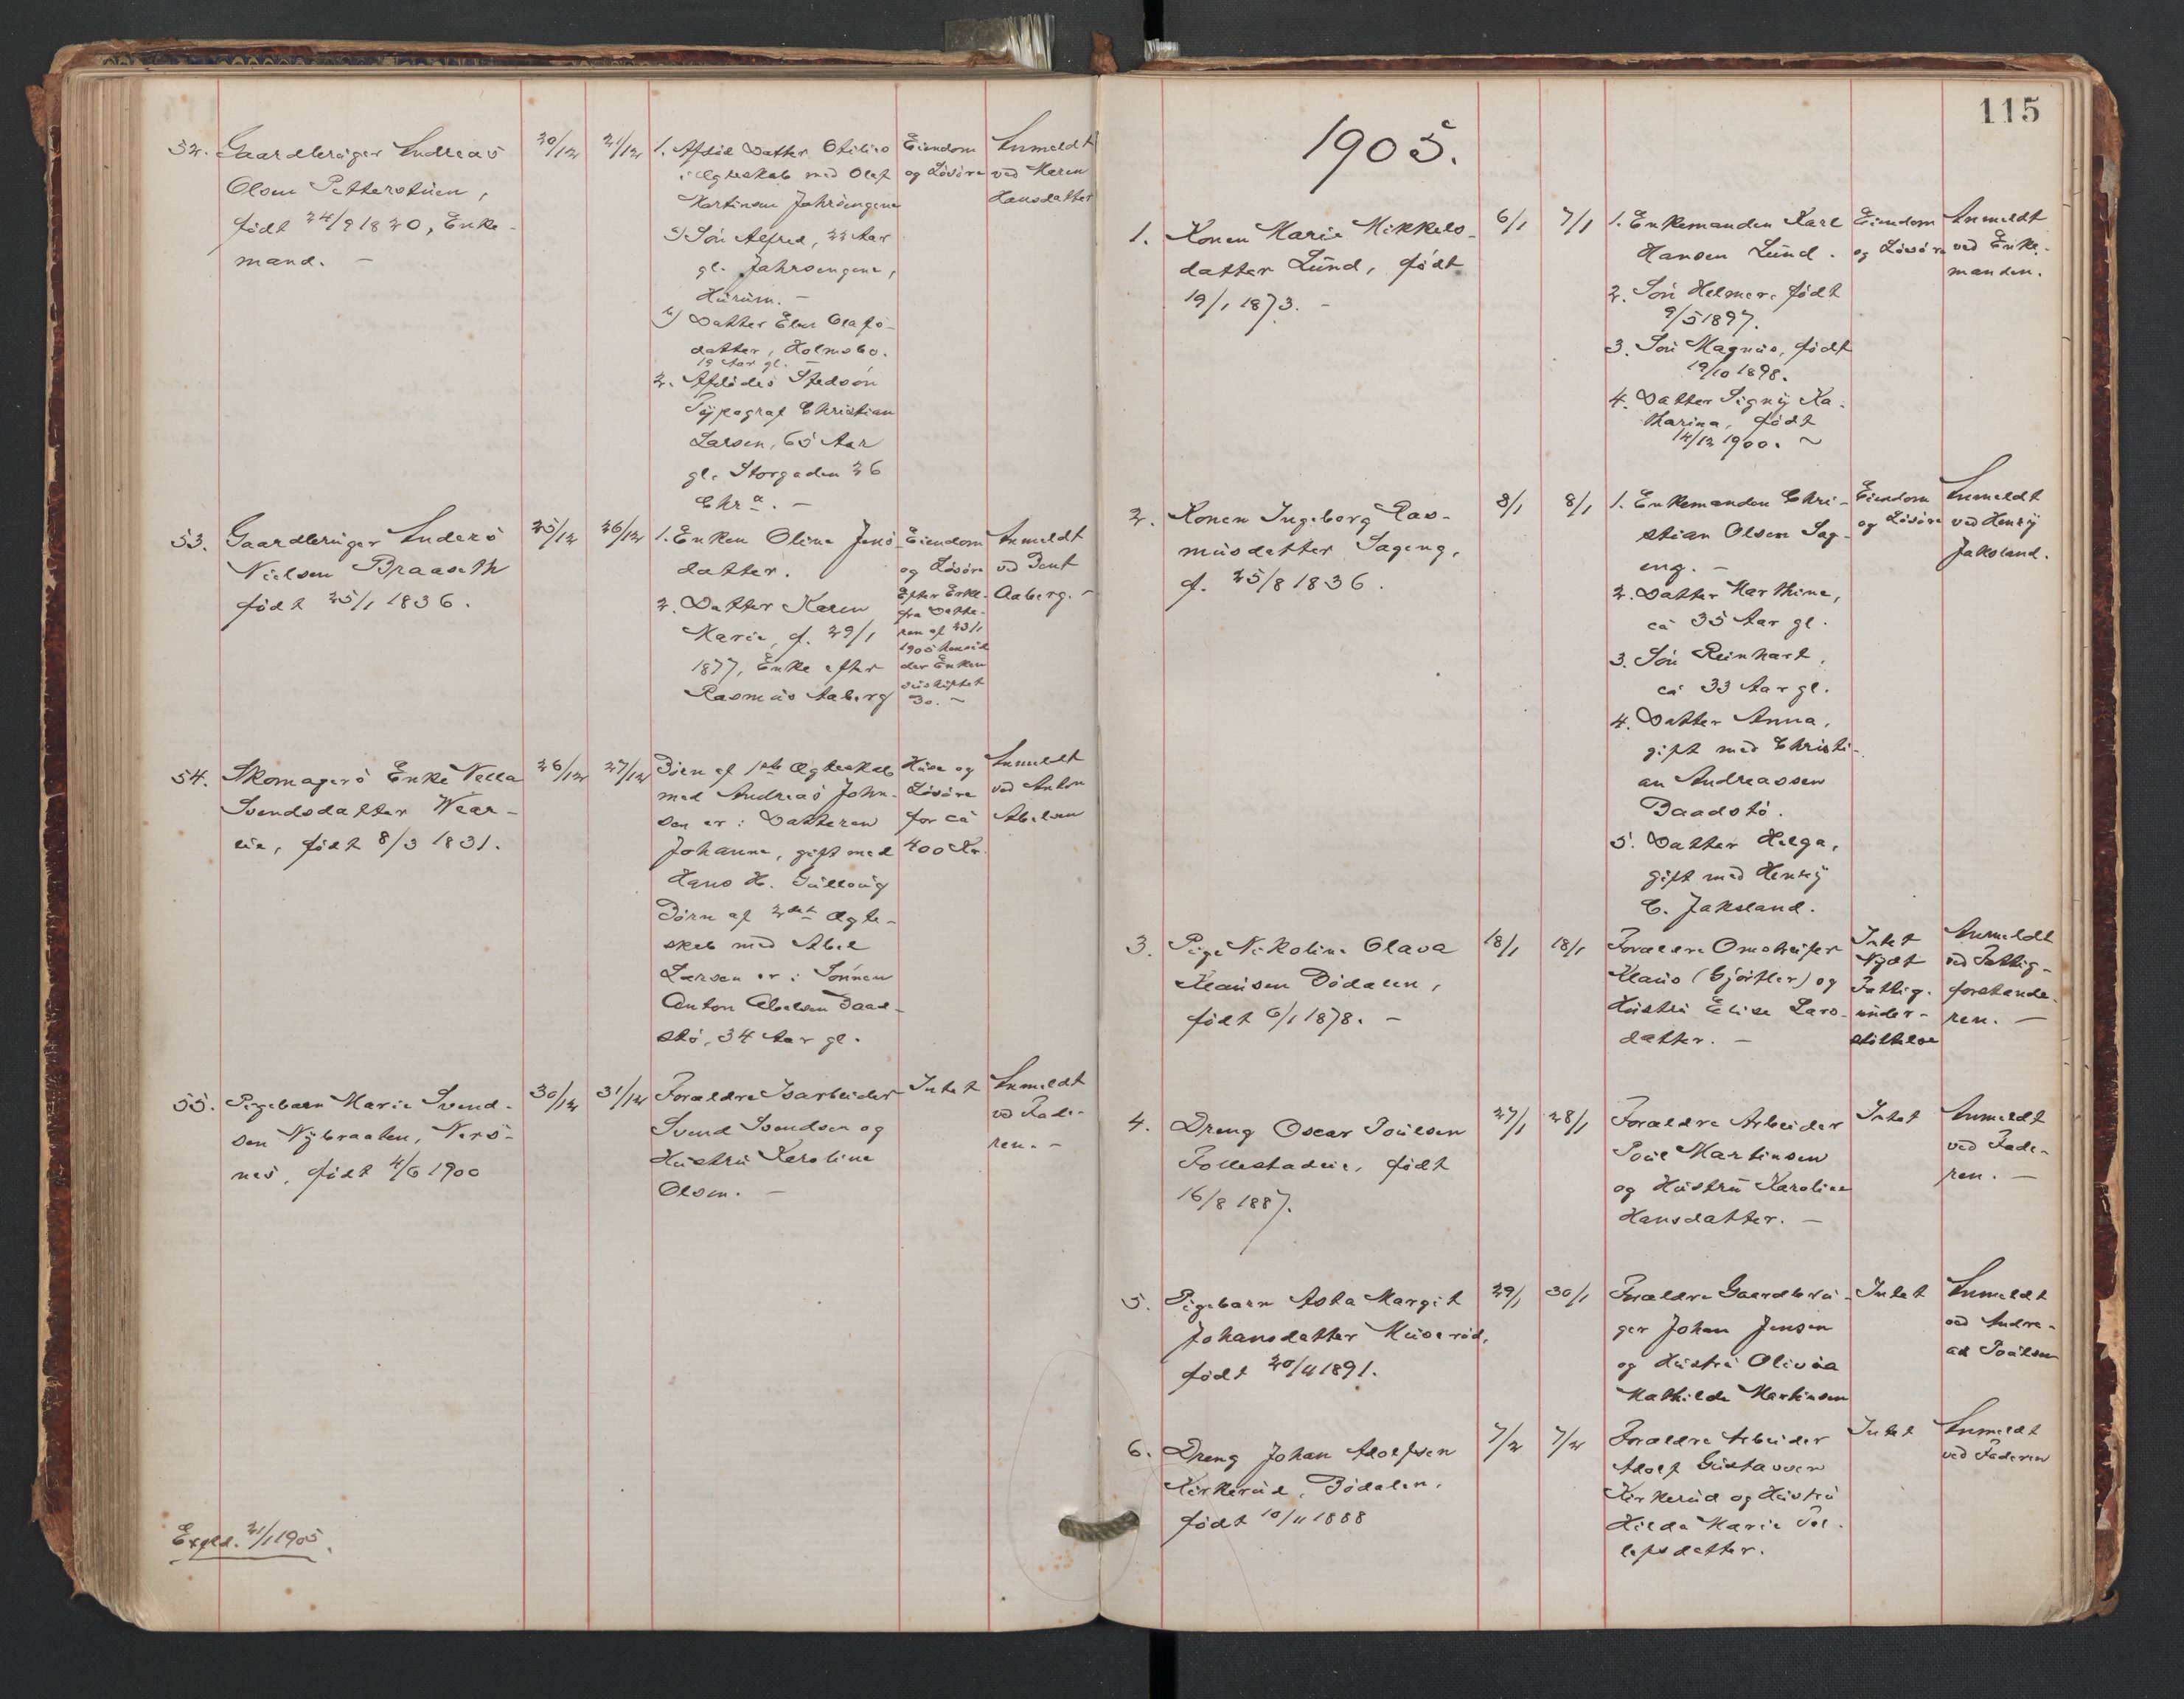 52. Gaardbruger Andreas
Olsen Petterstuen,
født 24/9 1820, Enke-
mand. —
20/12
21/12
1. Afdød Datter Otilies
i Ægteskab med Olaf
Martinsen Jahrsengene
a) Søn Alfred, 22 Aar
gl. Jahrsengene,
Hurum. —
b) Datter Olafs-
datter, Holmsbo.
19 Aar gl.
2. Afdødes Stedsøn
Typograf Christian
Larsen, 65 Aar
gl. Storgaden 26
Chr.a. —
Eiendom
og Løsøre
Anmeldt
ved Maren
Hansdatter
53. Gaardbruger Anders
Nielsen Braaseth
født 25/1 1836.
25/12
26/12
1. Enken Oline Jens-
datter.
2. Datter Karen
Marie, f. 29/1
1877, Enke efter
Rasmus Aaberg
Eiendom
og Løsøre
Efter
fra Datte-
ren af 23/1
1905
der Enken
uskiftet
Bo. —
Anmeldt
ved Bent
Aaberg. —
54. Skomagers Enke Nella
Svendsdatter Wear-
eie, født 8/3 1831.
26/12
27/12
Børn af 1ste Ægteskab
med Andreas John-
sen er: Datteren
Johanne, gift med
Hans H. Gullaug
Børn af 2det Ægte-
skab med Abel
Larsen er: Sønnen
Anton Abelsen Baad-
stø, 34 Aar gl.
Huse og
Løsøre
for ca
400 Kr.
Anmeldt
ved Anton
Abelsen
55. Pigebarn Marie Svend-
sen Nybraaten, Nærs-
nes, født 4/6 1900
30/12
31/12
Forældre Isarbeider
Svend Svendsen og
Hustru Karoline
Olsen. —
Intet
Anmeldt
ved Fade-
ren. —
Expd. 21/1 1905.
115
1905.
1. Konen Marie Mikkels-
datter Lund, født
19/1 1873. —
6/1
7/1
1. Enkemanden Karl
Hansen Lund.
2. Søn Helmer født
9/5 1897.
3. Søn Magnus, født
19/10 1898.
4. Datter Signy Ka-
tharina, født
14/12 1900. ~
Eiendom
og Løsøre
Anmeldt
ved Enke-
manden.
2. Konen Ingeborg Ras-
musdatter Sageng,
f. 25/8 1836.
8/1
8/1
1. Enkemanden Chri-
stian Olsen Sag-
eng. —
2. Datter Marthine,
ca 35 Aar gl.
3. Søn Reinhart,
ca 33 Aar gl.
4. Datter Anna,
gift med Christi-
an Andreassen
Baadstø.
5. Datter Helga,
gift med Henry
C. Jaksland.
Eiendom
og Løsøre
Anmeldt
ved Henry
Jaksland.
3. Pige Nikoline Olava
Klausen Bødalen,
født 6/1 1878. —
18/1
18/1
Forældre Omstreifer
Klaus (Gjørtler) og
Hustru Elise Lars-
datter. —
Intet
Nydt
Fattig-
under-
støttelse
Anmeldt
ved Fattig-
forstande-
ren. —
4. Dreng Oscar Poulsen
Follestadeie, født
16/8 1887.
27/1
28/1
Forældre Arbeider
Poul Martinsen
og Hustru Karoline
Hansdatter. —
Intet
Anmeldt
ved Fade-
ren. —
5. Pigebarn Asta Margit
Johansdatter Muserud,
født 20/4 1891.
29/1
30/1
Forældre Gaardbru-
ger Johan Jensen
og Hustru Olivia
Mathilde Martinsen
Intet
Anmeldt
ved Andre-
as Poulsen
6. Dreng Johan Adolfsen
Kirkerud, Bødalen,
født 10/11 1888
7/2
7/2
Forældre Arbeider
Adolf Gustavsen
Kirkerud og Hustru
Hilda Marie Tol-
lefsdatter.
Intet
Anmeldt
ved Faderen